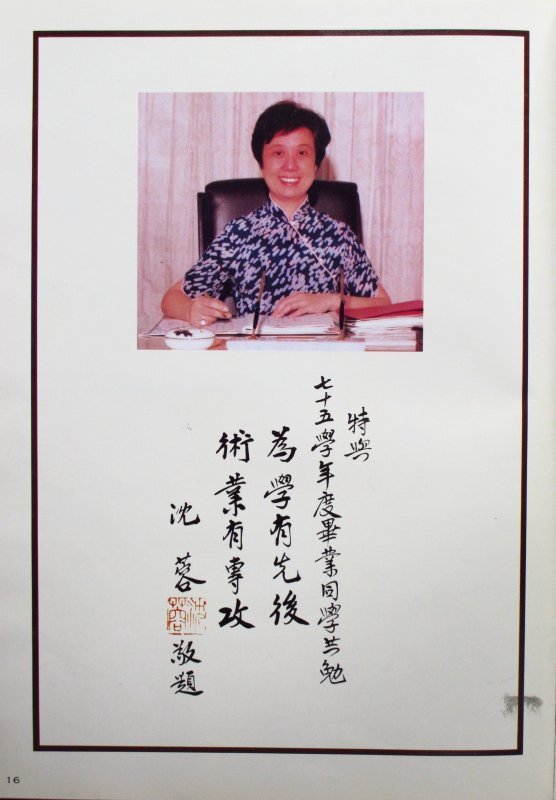 特與
七十五學年度畢業同學共勉
為學有先後
術業有專攻
沈蓉敬題
沈蓉
16